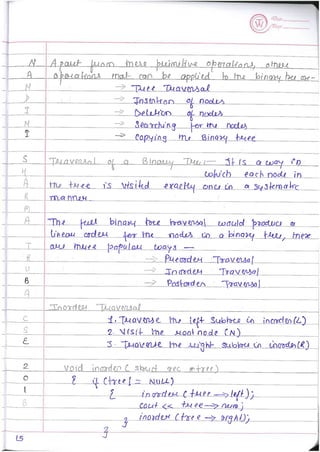 W Date
Page
N Apart from these primitive operations, other
A operations that can be applied to the binary tree are-
N → Tree Traversal
D → Insertion of nodes
I → Deletion of nodes
N → Searching for the nodes
I → Copying the Binary tree
S Traversal of a Binary Tree:- It is a way in
which each node in
A the tree is visited exactly once in a systematic
R manner.
M
A The full binary tree traversal would produce a
linear order for the nodes in a binary tree, there
T are three popular ways —
R → Preorder Traversal
U → Inorder Traversal
B → Postorder Traversal
A
Inorder Traversal
C 1. Traverse the left Subtree in inorder(L)
S 2. Visit the root node (N)
E 3. Traverse the right subtree in inorder(R)
2 void inorder ( struct rec *tree)
0 { if (tree != NULL)
1 { inorder (tree → left);
8 cout << tree → num;
} inorder (tree → right);
15 }